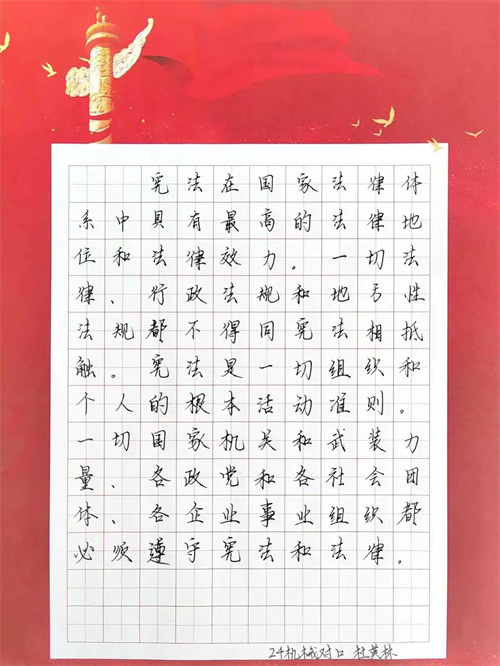 宪法在国家法律体
系中具有最高的法律地
位和法律效力。一切法
律、行政法规和地方性
法规都不得同宪法相抵
触。宪法是一切组织和
个人的根本活动准则。
一切国家机关和武装力
量、各政党和各社会团
体、各企业事业组织都
必须遵守宪法和法律。
24机械对口 杜英林